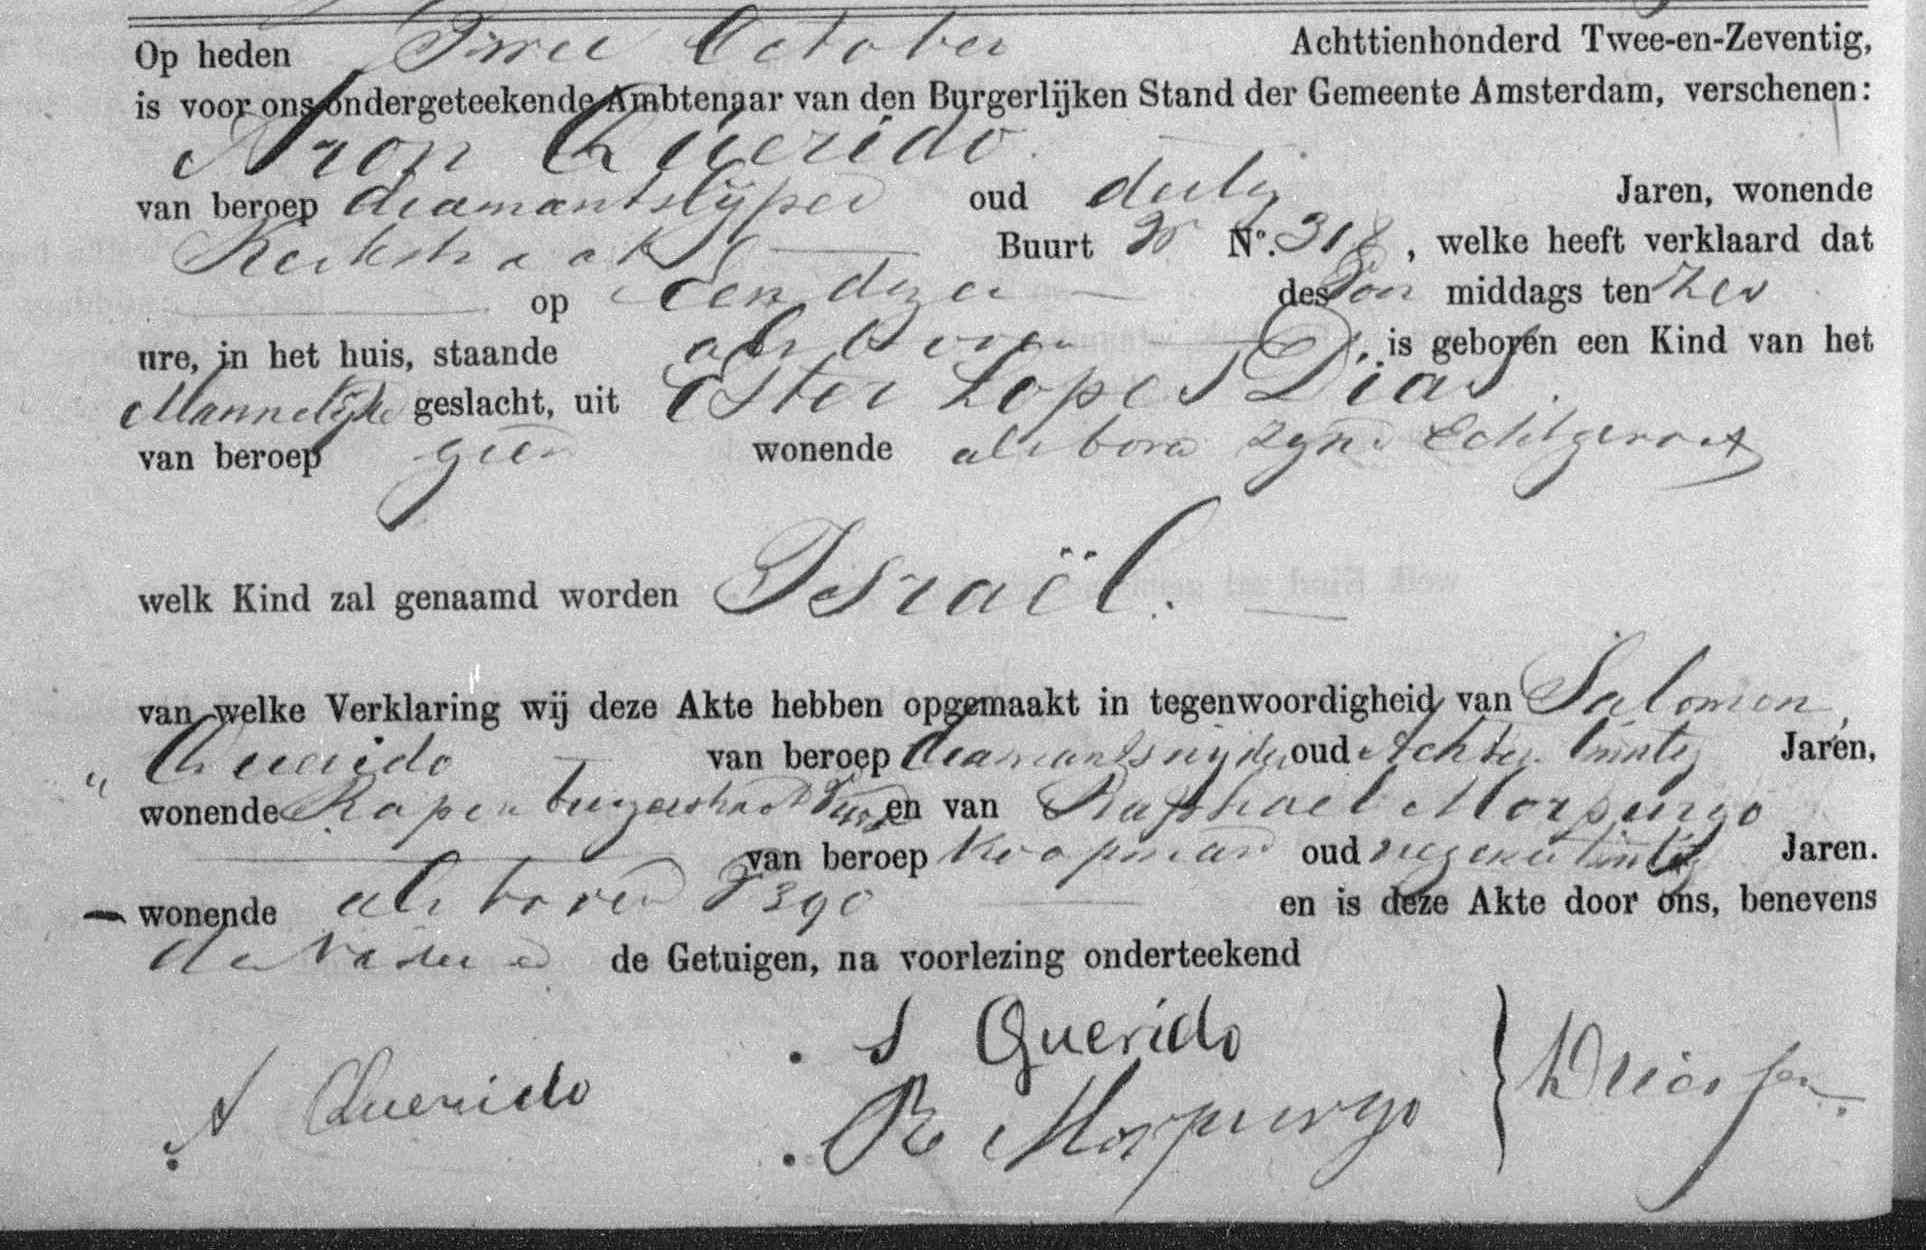 Op heden Twee October Achttienhonderd Twee-en-Zeventig,
is voor ons ondergeteekende Ambtenaar van den Burgerlijken Stand der Gemeente Amsterdam, verschenen:
Aron Querido
van beroep diamantslijper oud dertig Jaren, wonende
Kerkstraat Buurt No. 318, welke heeft verklaard dat
op Een dezer des Voor middags ten zes
ure, in het huis, staande als boven, is geboren een Kind van het
Mannelijke geslacht, uit Ester Lopes Dias.
van beroep geen wonende als boven zijne Echtgenoot
welk Kind zal genaamd worden Israël.
van welke Verklaring wij deze Akte hebben opgemaakt in tegenwoordigheid van Salomon,
Querido van beroep diamantsnijder oud Achten twintig Jaren,
wonende Rapenburgerstraat en van Raphael Morpurgo
van beroep Koopman oud negenentwintig Jaren.
wonende als boven 390 en is deze Akte door ons, benevens
de Getuigen, na voorlezing onderteekend
S Querido
A Querido
R Morpurgo